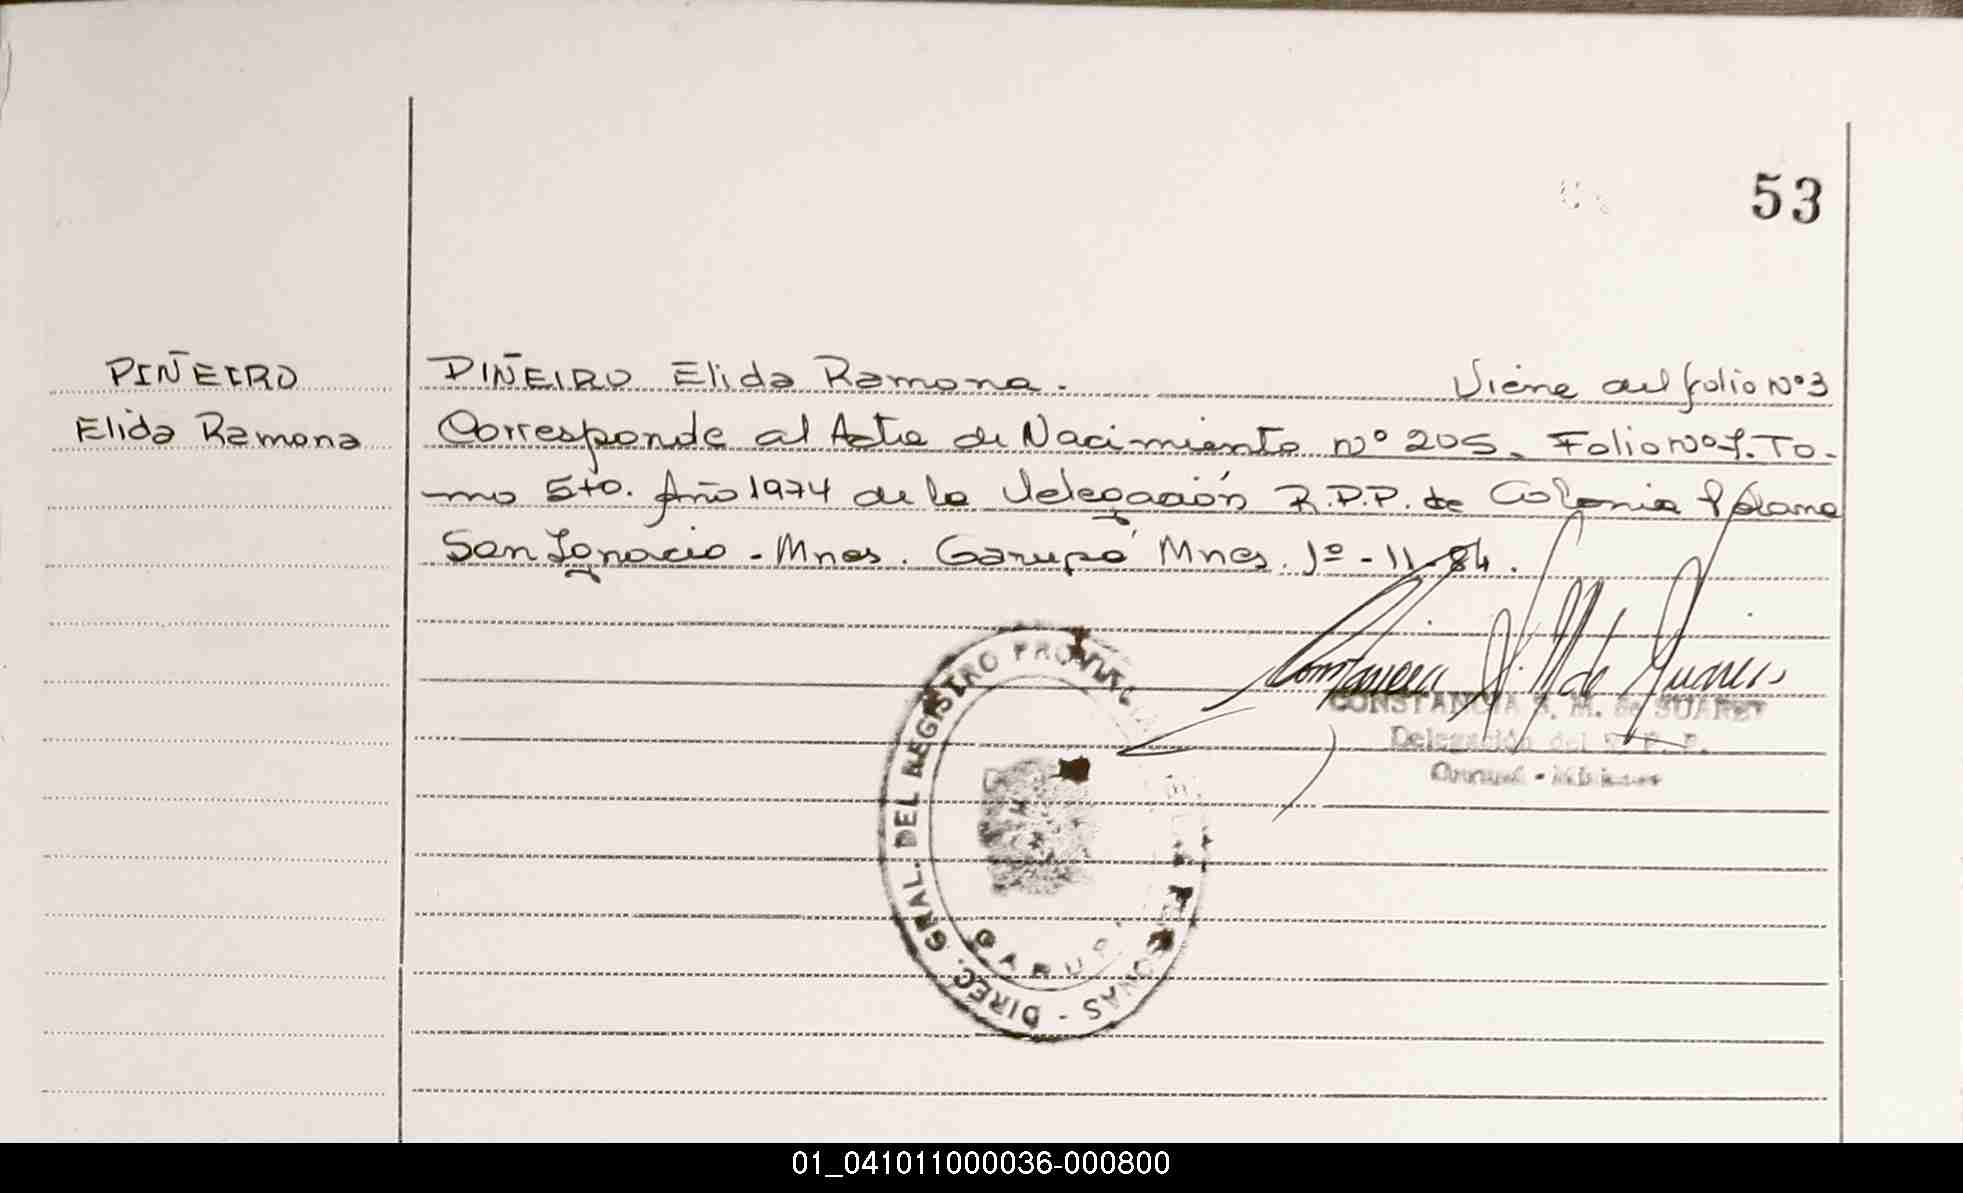 53
PIÑEIRO
Elida Ramona
PIÑEIRO Elida Ramona.
Viene del folio Nº3
Corresponde al Acta de Nacimiento nº 205. Folio Nº To-
mo 5to. Año 1974 de la delegación R.P.P. de Colonia Polana
San Ignacio - Mnes. Garupá Mnes. 1º-11-84.
CONSTANCIA M. de SUAREZ
Delegación del R. P. P.
DIREC. GRAL. DEL REGISTRO PROVINCIAL PERSONAS -
GARUPA
01_041011000036-000800